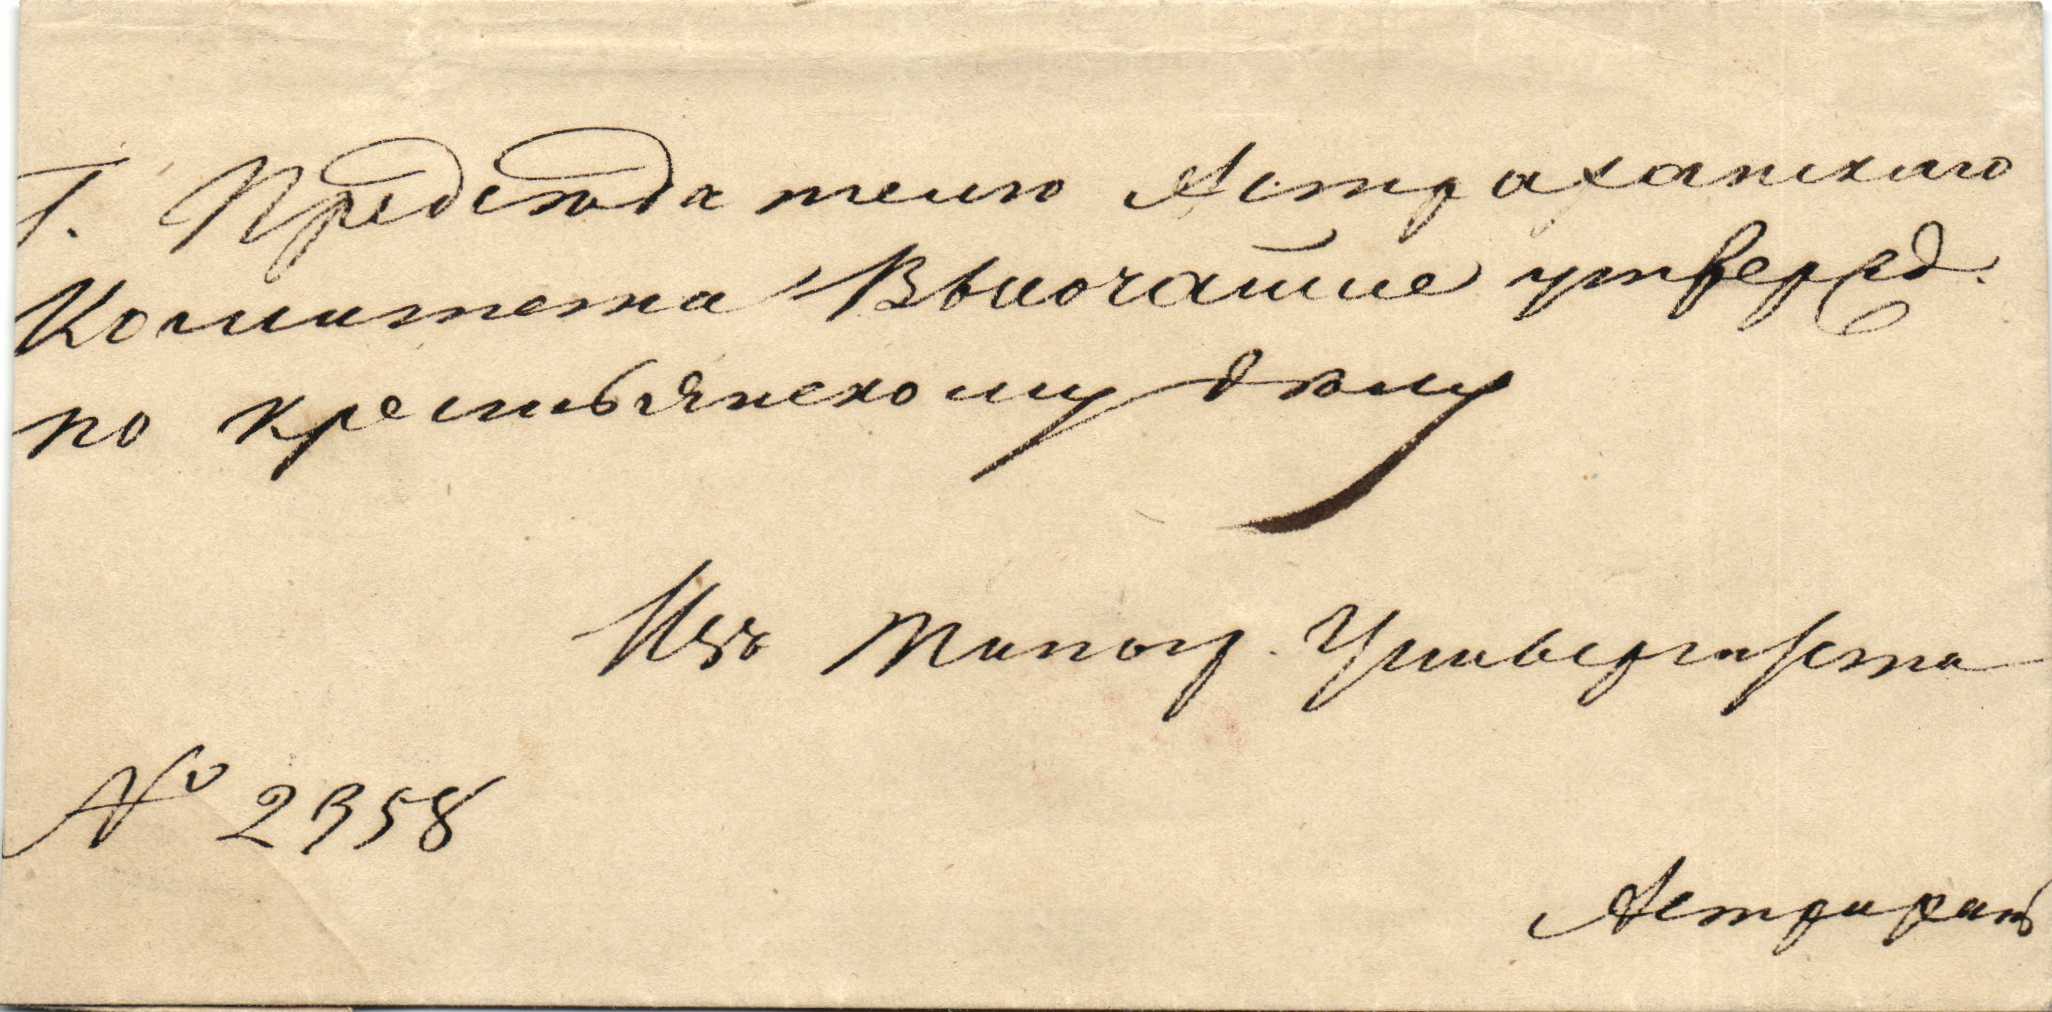 Г. Председателю Астраханскаго
Комитета Высочайше утвержд.
по крестьянскому дѣлу
Изъ Типогр. Университета
№ 2358
Астрахань